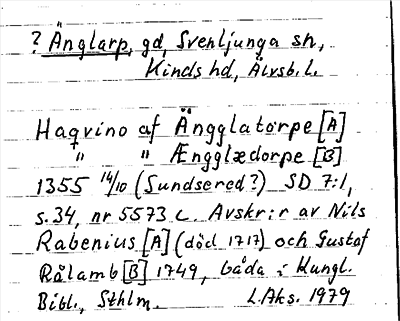 ? Änglarp, gd, Svenljunga sn,
Kinds hd, Älvsb. l.
Haqvino af Ängglatorpe [A]
" " Ængglædorpe [B]
1355 14/10 (Sundsered?) SD 7:1,
s. 34, nr 5573 c. Avskr:r av Nils
Rabenius [A] (död 1717) och Gustaf
Rålamb [B] 1749, båda i Kungl.
Bibl., Sthlm. L.Aks. 1979